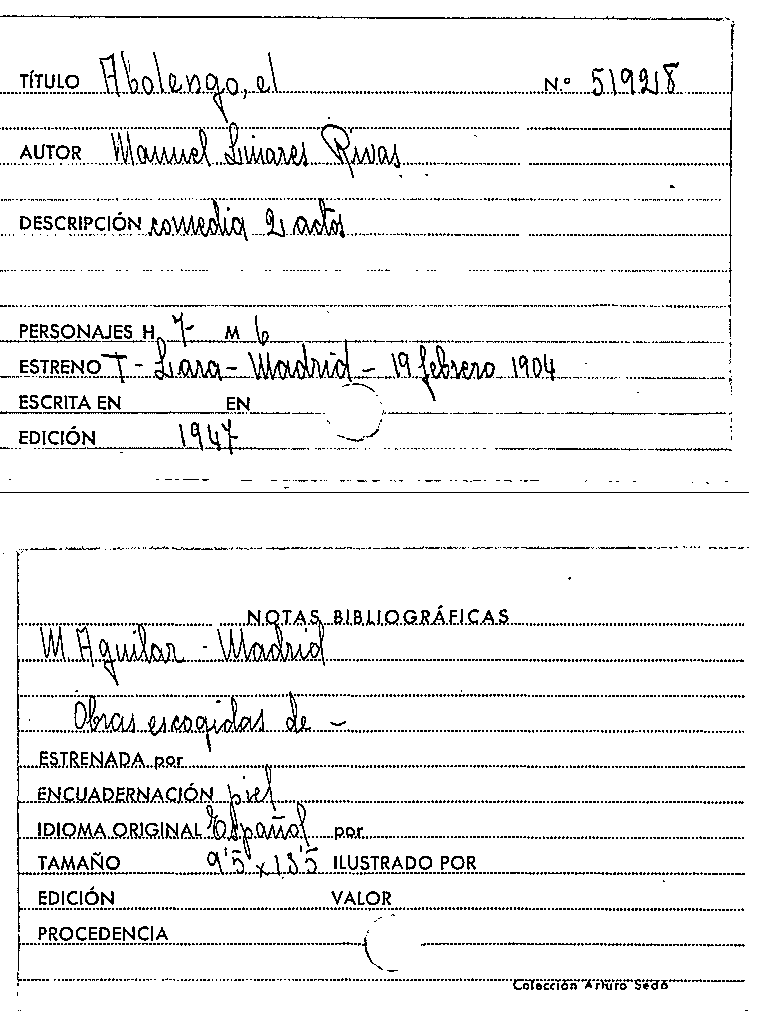 TÍTULO Abolengo, el Nº 51928
AUTOR Manuel Linares Rivas
DESCRIPCIÓN comedia 2 actos
PERSONAJES H 7 M 6
ESTRENO T - Lara - Madrid - 19 febrero 1904
ESCRITA EN EN
EDICIÓN 1947
NOTAS BIBLIOGRÁFICAS
M. Aguilar - Madrid
Obras escogidas de -
ESTRENADA por
ENCUADERNACIÓN piel
IDIOMA ORIGINAL Español por
TAMAÑO 9'5 x 13'5 ILUSTRADO POR
EDICIÓN VALOR
PROCEDENCIA
Colección Arturo Sedó